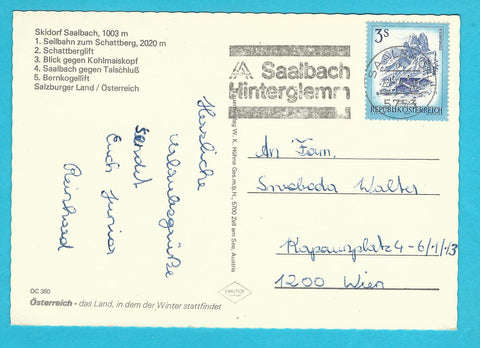 Skidorf Saalbach, 1003 m
1. Seilbahn zum Schattberg, 2020 m
2. Schattberglift
3. Blick gegen Kohlmaiskopf
4. Saalbach gegen Talschluß
5. Bernkogellift
Salzburger Land / Österreich
Herzliche
Urlaubsgrüße
sendet
Euch
Reinhard
OC 360
Österreich - das Land, in dem der Winter stattfindet
W. K. Hühne Ges.m.b.H., 5700 Zell am See, Austria
Saalbach
Hinterglemm
3 S
REPUBLIK ÖSTERREICH
An Fam.
Swoboda Walter
Kapaunplatz 4-6/1/13
1200 Wien